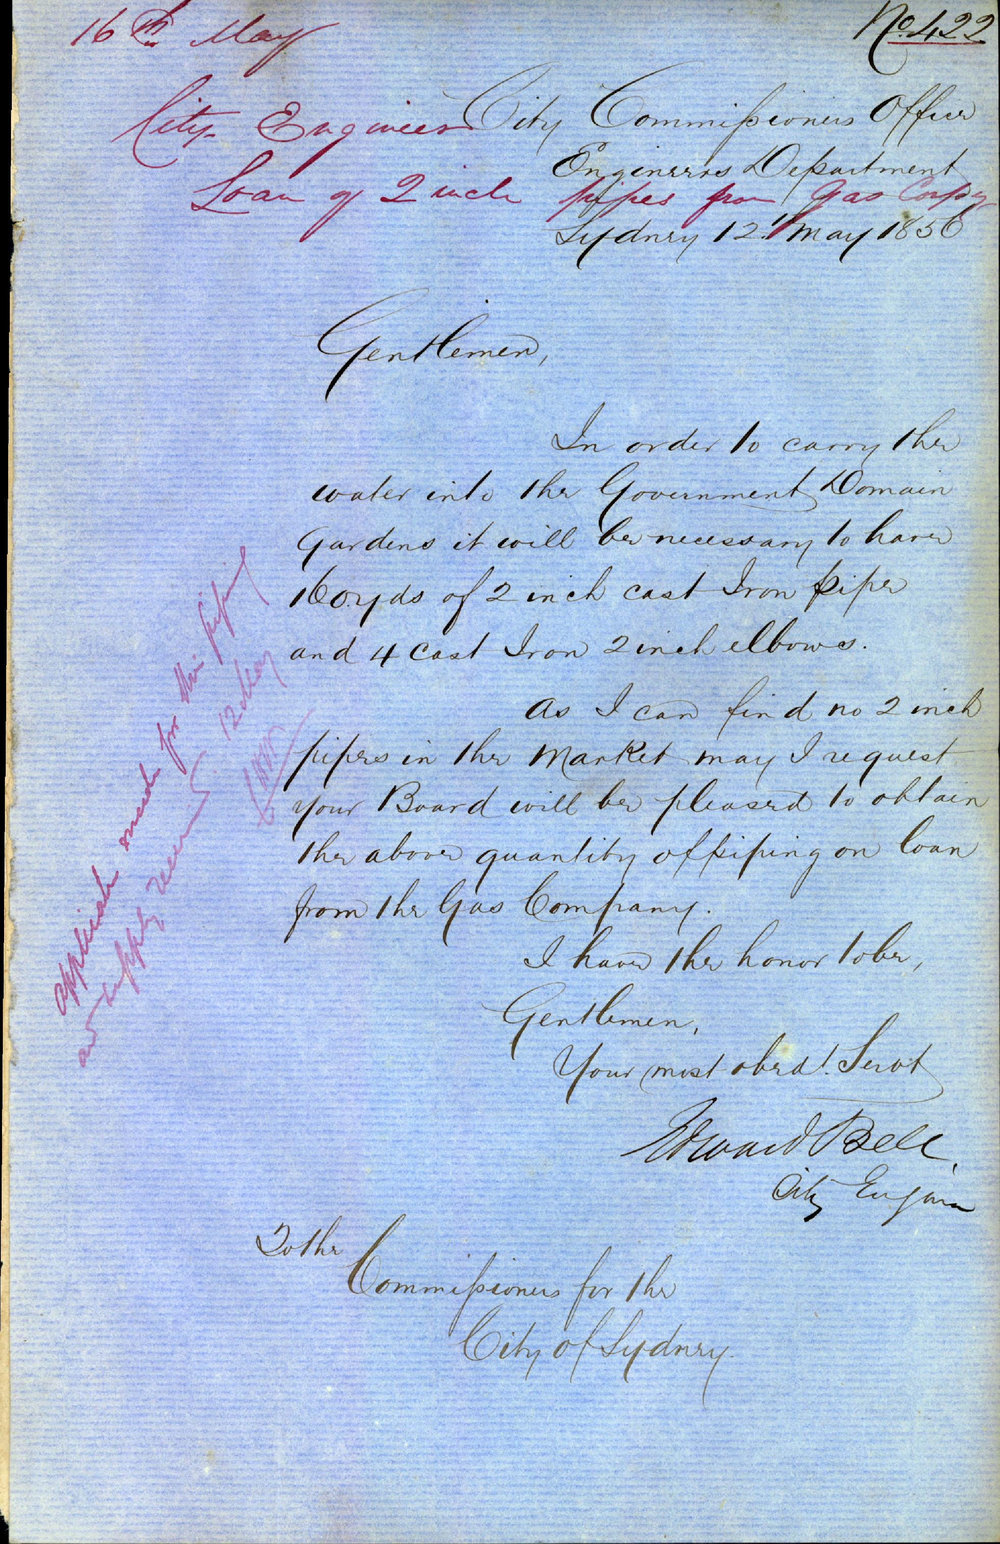 16th May
No. 422
City Engineer
City Commissioners Office
Engineers Department
Loan of 2 inch pipes from Gas Compy
Sydney 12 May 1856
Gentlemen,
In order to carry the
water into the Government Domain
Gardens it will be necessary to have
160 yds of 2 inch cast Iron pipe
and 4 Cast Iron 2 inch elbows.
As I can find no 2 inch
pipes in the Market may I request
your Board will be pleased to obtain
the above quantity of piping on loan
from the Gas Company.
I have the honor to be,
Gentlemen,
Your most obedt. Servt
Edward Bell,
City Engineer
To the
Commissioners for the
City of Sydney.
made for this piping
supply 12 May